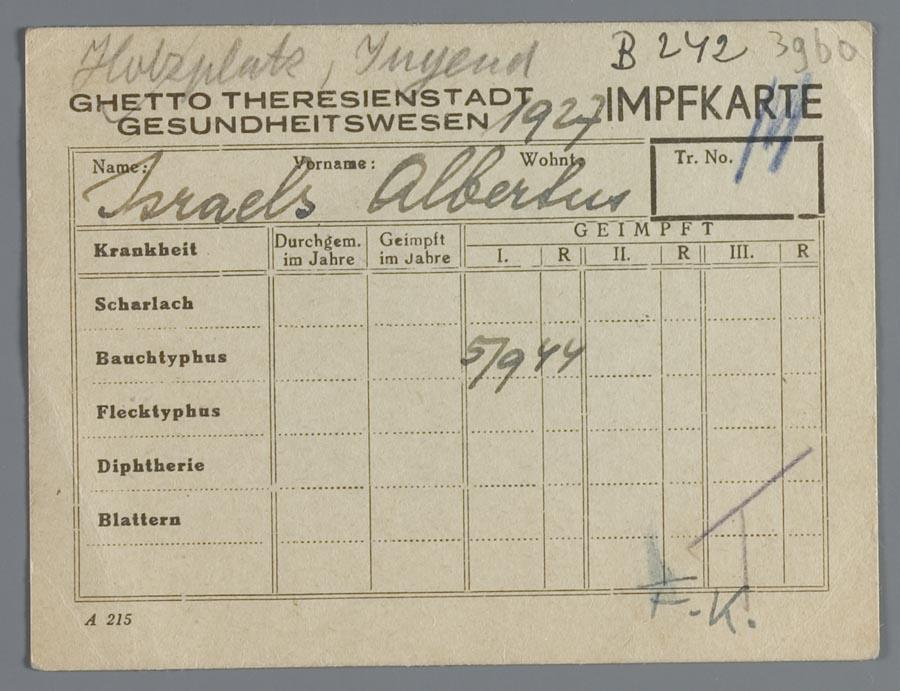 Holzplatz, Jugend B 242 3960
GHETTO THERESIENSTADT
GESUNDHEITSWESEN 1927 IMPFKARTE
Name: Vorname: Wohnt Tr. No.
Israels Albertus
Krankheit Durchgem. im Jahre Geimpft im Jahre GEIMPFT
I. R II. R III. R
Scharlach
Bauchtyphus 5/9 44
Flecktyphus
Diphtherie
Blattern
K.
A 215